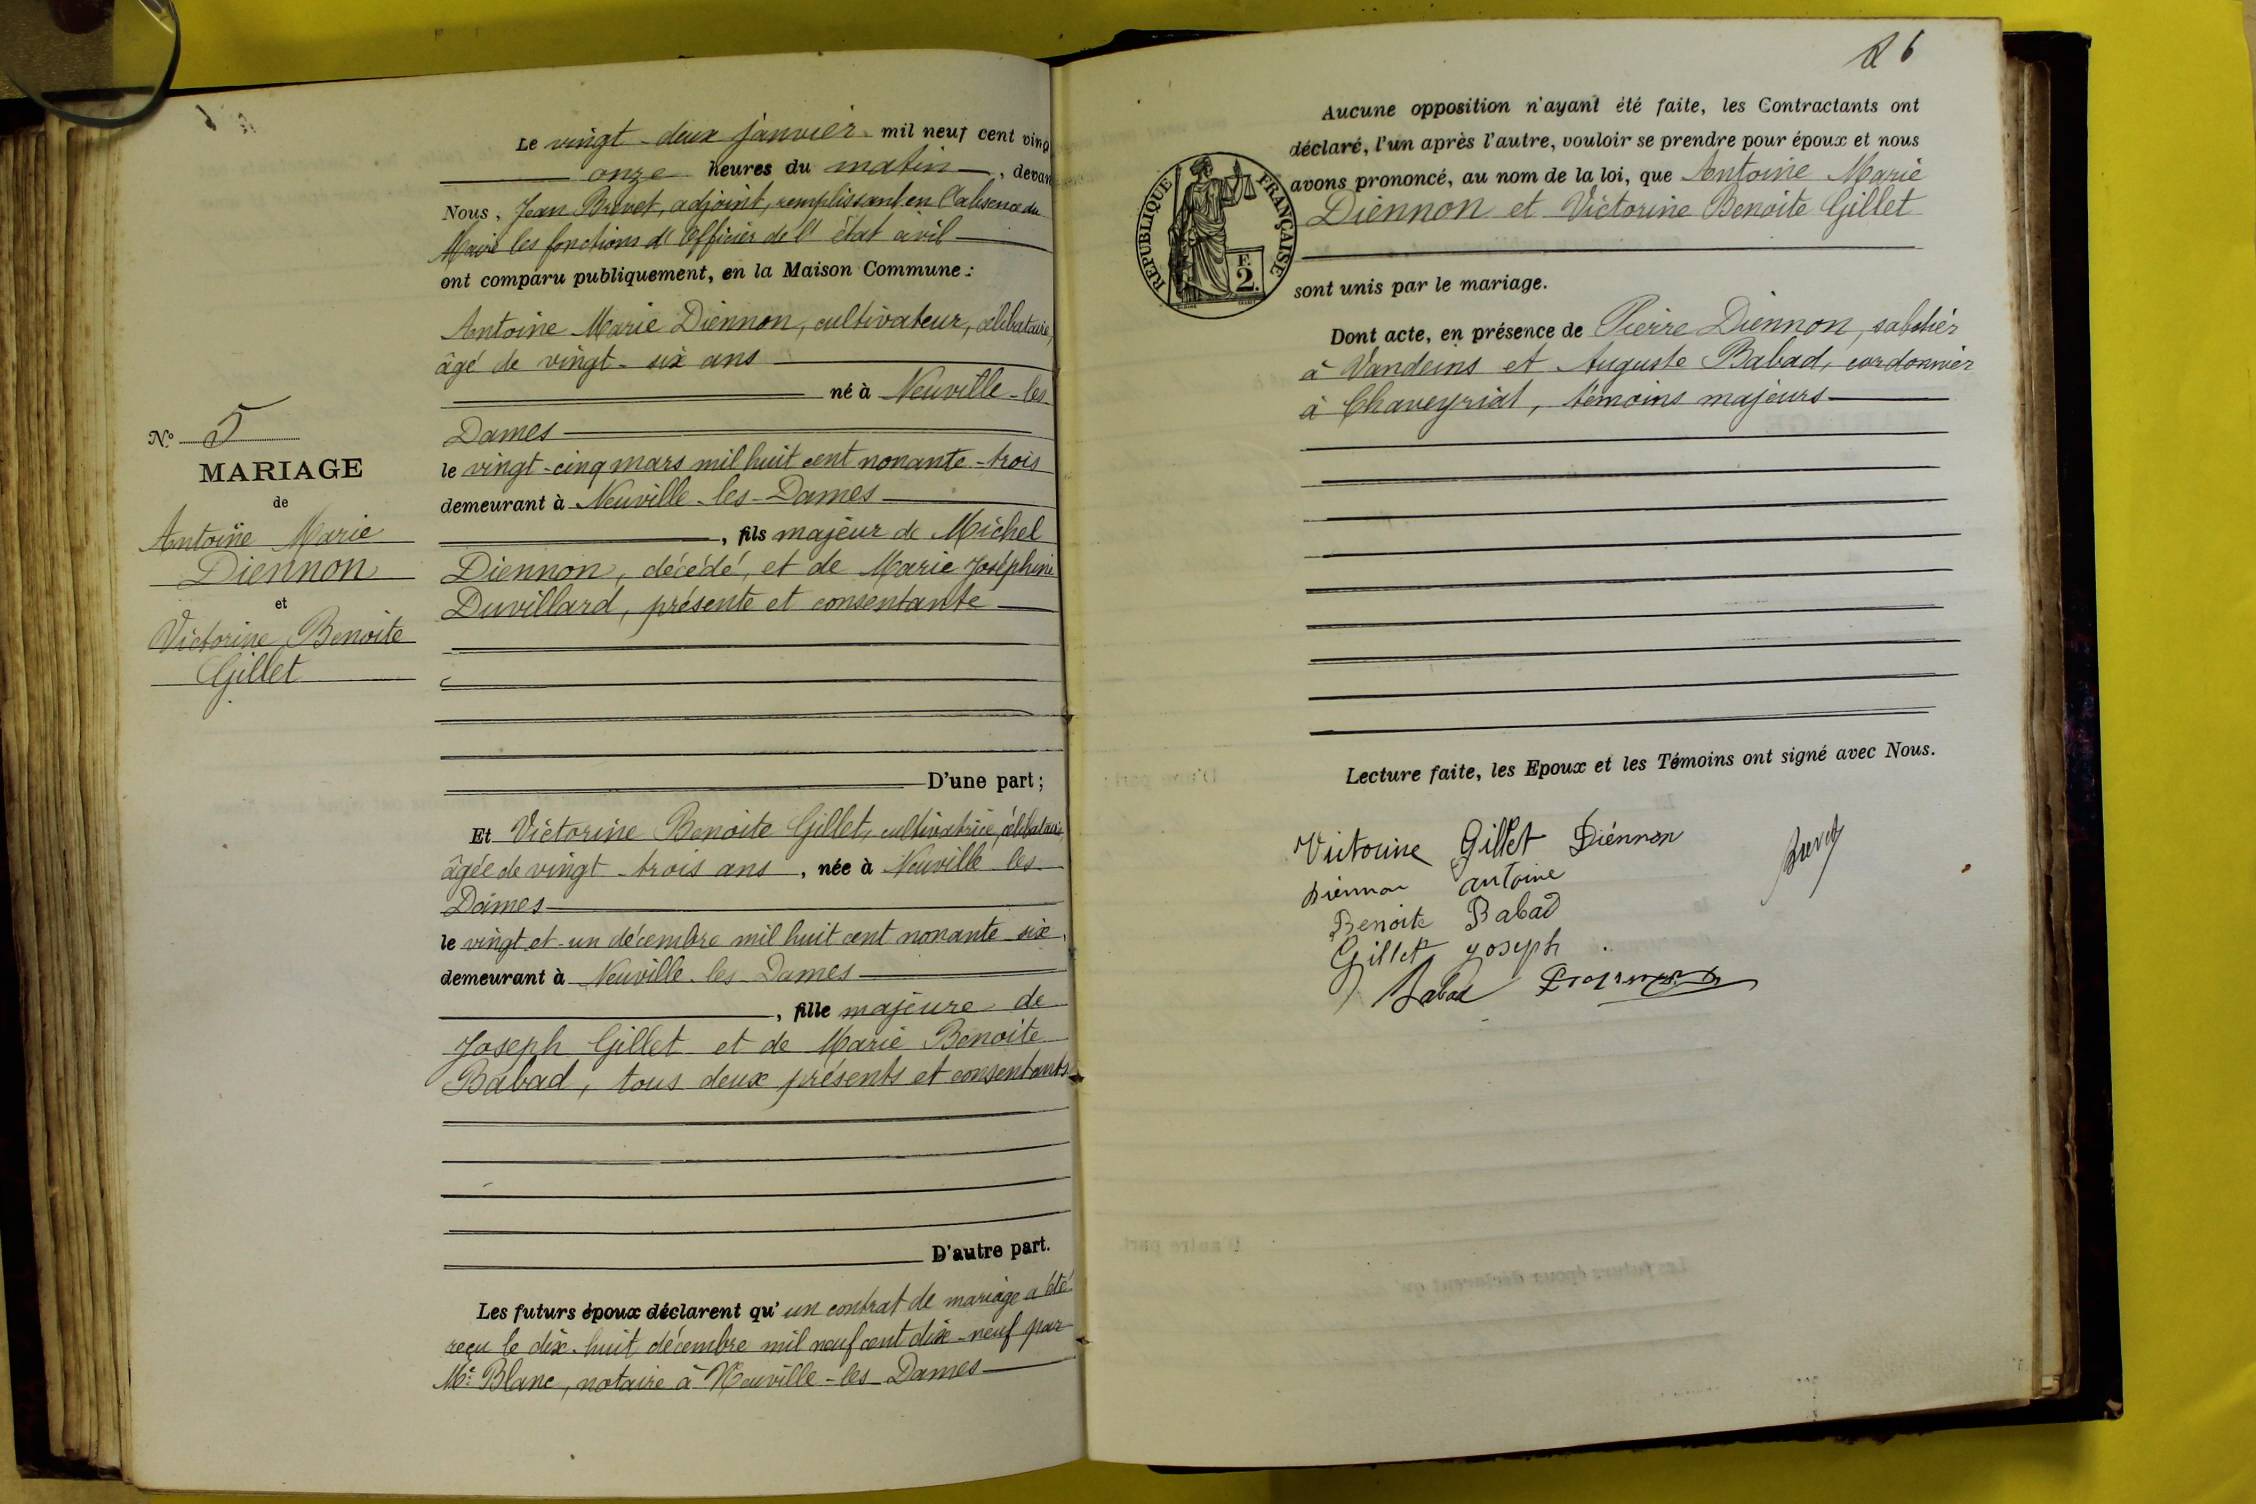 Le vingt-deux janvier mil neuf cent ving
onze heures du matin, devan
Nous, Jean Brevet, adjoint, remplissant en l'absence du
Maire les fonctions d'Officier de l'état civil
ont comparu publiquement, en la Maison Commune :
Antoine Marie Diennon, cultivateur, célibataire,
âgé de vingt-six ans
né à Neuville-les-
Dames
le vingt-cinq mars mil huit cent nonante-trois
demeurant à Neuville-les-Dames
, fils majeur de Michel
Diennon, décédé, et de Marie Joséphine
Duvillard, présente et consentante
D'une part ;
N° 5
MARIAGE
de
Antoine Marie
Diennon
et
Victorine Benoite
Gillet
Et Victorine Benoite Gillet, cultivatrice, célibataire
âgée de vingt-trois ans, née à Neuville-les-
Dames
le vingt-et-un décembre mil huit cent nonante-six,
demeurant à Neuville-les-Dames
, fille majeure de
Joseph Gillet et de Marie Benoite
Babad, tous deux présents et consentants
D'autre part.
Les futurs époux déclarent qu'un contrat de mariage a été
reçu le dix-huit décembre mil neuf cent dix-neuf par
Me Blanc, notaire à Neuville-les-Dames
6
Aucune opposition n'ayant été faite, les Contractants ont
déclaré, l'un après l'autre, vouloir se prendre pour époux et nous
avons prononcé, au nom de la loi, que Antoine Marie
Diennon et Victorine Benoite Gillet
sont unis par le mariage.
RÉPUBLIQUE FRANÇAISE
F.
2.
Dont acte, en présence de Pierre Diennon, sabotier
à Vandeins et Auguste Babad, cordonnier
à Chaveyriat, témoins majeurs
Lecture faite, les Epoux et les Témoins ont signé avec Nous.
Victorine Gillet Diénnon
Brevet
Diennon antoine
Benoite Babad
Gillet joseph
Babad